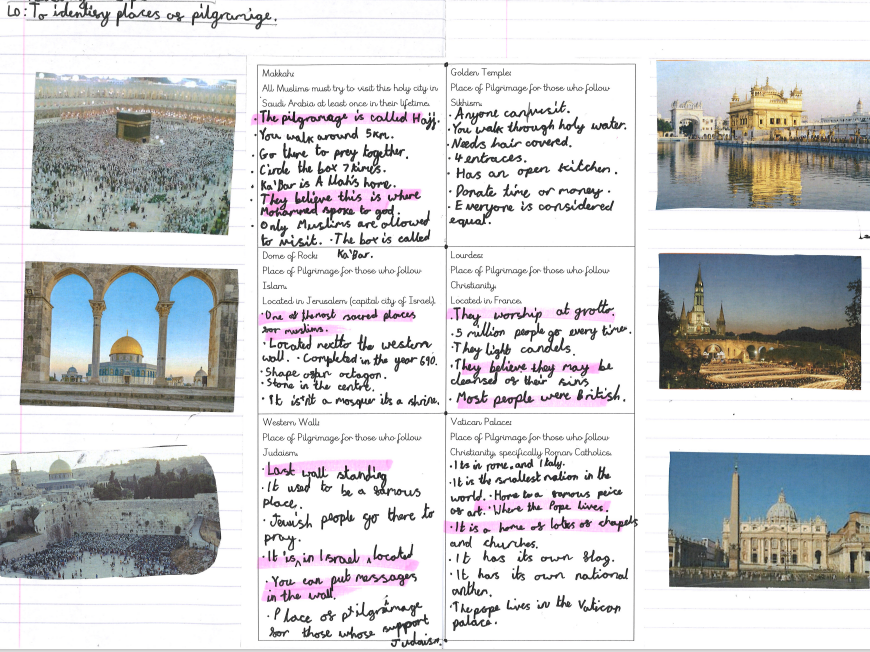 LO: To identify places of pilgramige.
Makkah:
All Muslims must try to visit this holy city in
Saudi Arabia at least once in their lifetime.
· The pilgramage is called Hajj.
· You walk around 5km.
· Go there to prey together.
· Circle the box 7 times.
· Ka'Bar is Allah's home.
· They believe this is where
Mohammed spoke to god.
· Only Muslims are allowed
to visit. · The box is called
Ka'Bar.
Golden Temple:
Place of Pilgrimage for those who follow
Sikhism:
· Anyone can visit.
· You walk through holy water.
· Needs hair covered.
· 4 entraces.
· Has an open kitchen.
· Donate time or money.
· Everyone is considered
equal.
Dome of Rock:
Place of Pilgrimage for those who follow
Islam.
Located in Jerusalem (capital city of Israel).
· One of the most sacred places
for muslims.
· Located next to the western
wall. · Completed in the year 690.
· Shape of an octagon.
· Stone in the centre.
· It isn't a mosque it's a shrine.
Lourdes:
Place of Pilgrimage for those who follow
Christianity.
Located in France.
· They worship at grotto.
· 5 million people go every time.
· They light candels.
· They believe they may be
cleansed of their sins
· Most people were British.
Western Wall:
Place of Pilgrimage for those who follow
Judaism.
· Last wall standing
· It used to be a famous
place.
· Jewish people go there to
pray.
· It is located in Israel
· You can put messages
in the wall.
· Place of pilgrimage
for those whose support
Judaism.
Vatican Palace:
Place of Pilgrimage for those who follow
Christianity, specifically Roman Catholics.
· Its in rome, and Italy.
· It is the smallest nation in the
world. · Home to a famous peice
of art. · Where the Pope lives.
· It is a home of lotes of chapels
and churches.
· It has its own flag.
· It has its own national
anthen.
· The pope lives in the Vatican
palace.